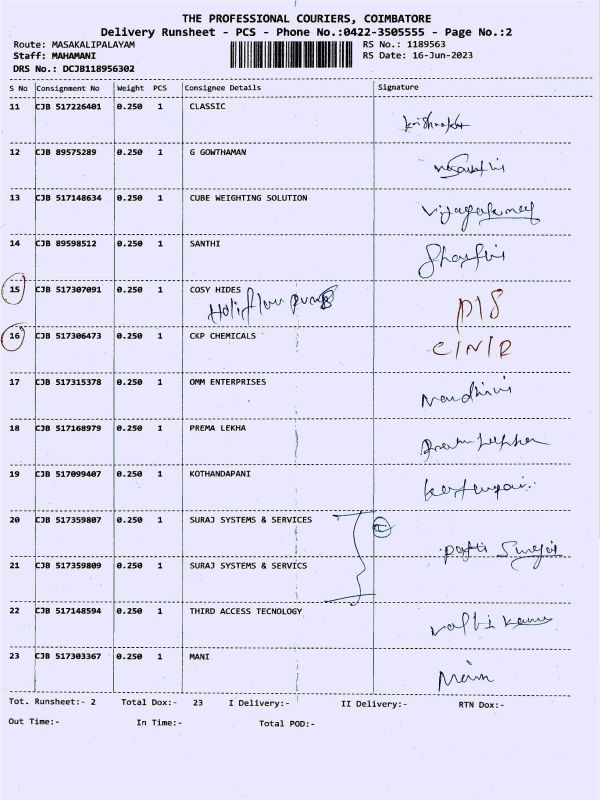 THE PROFESSIONAL COURIERS, COIMBATORE
Delivery Runsheet - PCS - Phone No.:0422-3505555 - Page No.:2
Route: MASAKALIPALAYAM RS No.: 1189563
Staff: MAHAMANI RS Date: 16-Jun-2023
DRS No.: DCJB118956302
S No Consignment No Weight PCS Consignee Details Signature
11 CJB 517226401 0.250 1 CLASSIC
12 CJB 89575289 0.250 1 G GOWTHAMAN
13 CJB 517148634 0.250 1 CUBE WEIGHTING SOLUTION
14 CJB 89598512 0.250 1 SANTHI
15 CJB 517307091 0.250 1 COSY HIDES
16 CJB 517306473 0.250 1 CKP CHEMICALS C/N/R
17 CJB 517315378 0.250 1 OMM ENTERPRISES Nandhini
18 CJB 517168979 0.250 1 PREMA LEKHA
19 CJB 517099407 0.250 1 KOTHANDAPANI
20 CJB 517359807 0.250 1 SURAJ SYSTEMS & SERVICES
21 CJB 517359809 0.250 1 SURAJ SYSTEMS & SERVICS
22 CJB 517148594 0.250 1 THIRD ACCESS TECNOLOGY
23 CJB 517303367 0.250 1 MANI
Tot. Runsheet:- 2 Total Dox:- 23 I Delivery:- II Delivery:- RTN Dox:-
Out Time:- In Time:- Total POD:-